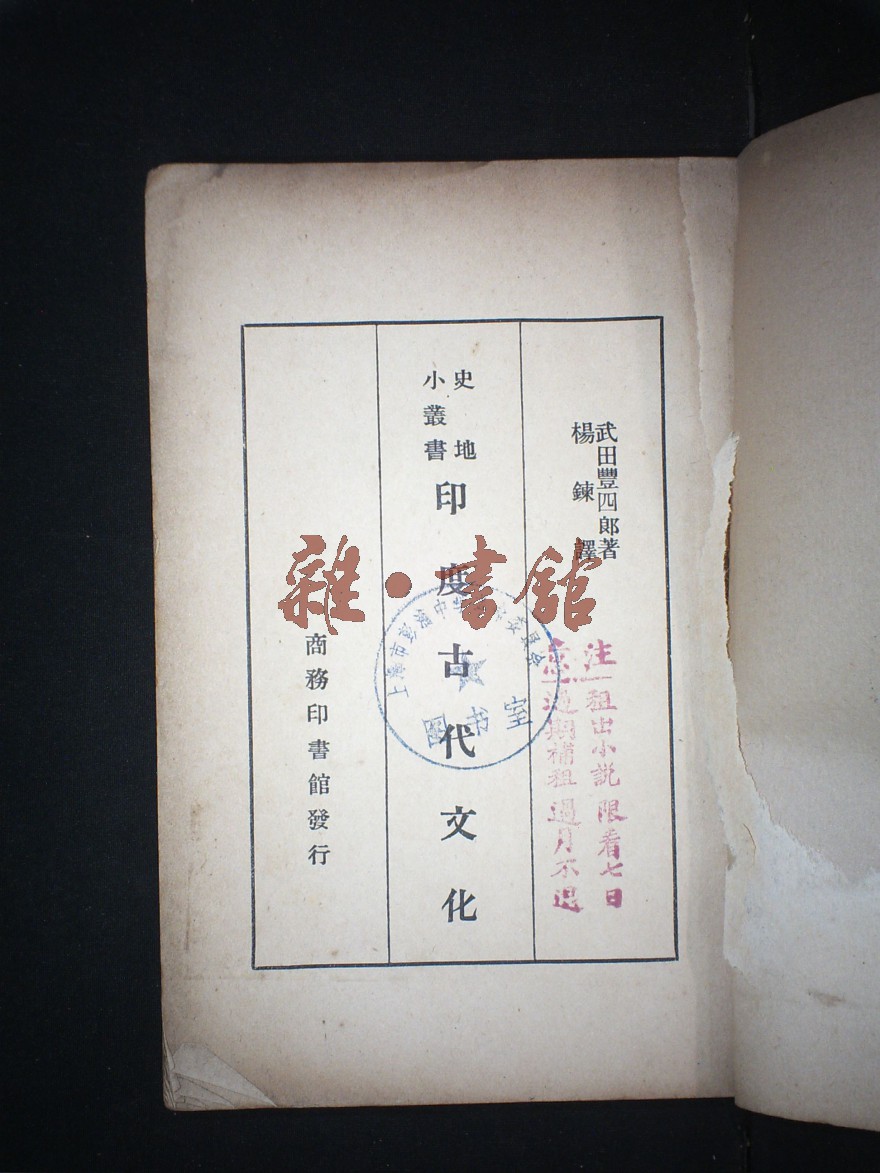 武田豐四郎著
楊鍊譯
史地
小叢書
印度古代文化
商務印書館發行
雜·書館
注租出小説限看七日
意過期補租過月不退
上海市
图书室